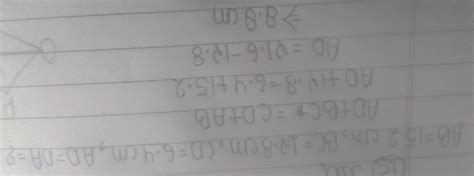 AB=15.2 cm, BC=12.8 cm, CD=6.4 cm, AD=DA=?
AD+BC = CD+AB
AD+12.8 = 6.4+15.2
AD = 21.6-12.8
⇒ 8.8 cm